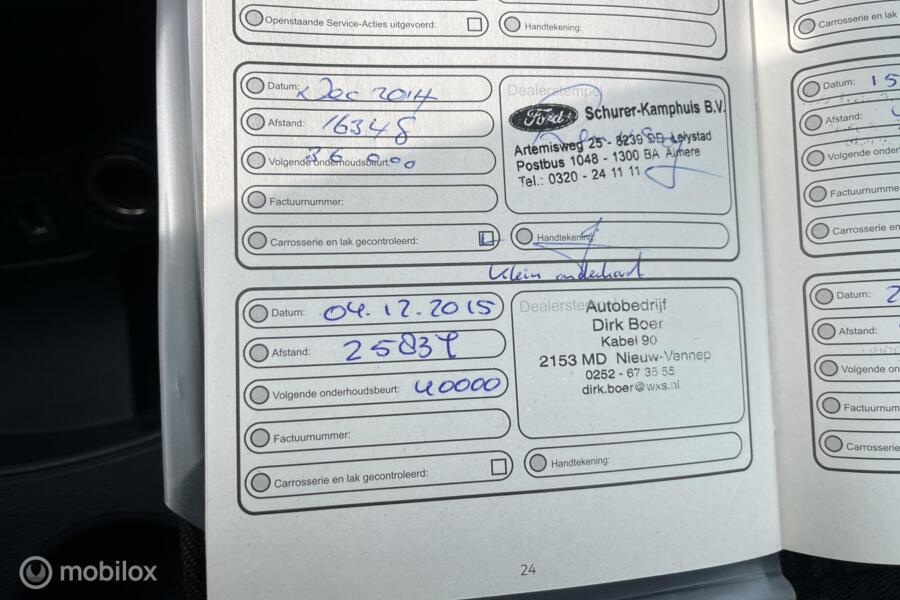 Openstaande Service-Acties uitgevoerd:
Handtekening:
Datum: Dec 2014
Afstand: 16348
Volgende onderhoudsbeurt: 36000
Factuurnummer:
Carrosserie en lak gecontroleerd:
Dealerstempel
Ford Schurer-Kamphuis B.V.
Artemisweg 25 - 8239 DD Lelystad
Postbus 1048 - 1300 BA Almere
Tel.: 0320 - 24 11 11
Handtekening:
Klein onderhoud
Datum: 04.12.2015
Afstand: 25837
Volgende onderhoudsbeurt: 40000
Factuurnummer:
Carrosserie en lak gecontroleerd:
Dealerstempel
Autobedrijf
Dirk Boer
Kabel 90
2153 MD Nieuw-Vennep
0252 - 67 35 55
dirk.boer@wxs.nl
Handtekening:
24
Carrosserie en lak
Datum: 15
Afstand:
Volgende
Carrosserie en
Datum: 2
Afstand:
Volgende
Carrosserie
mobilox